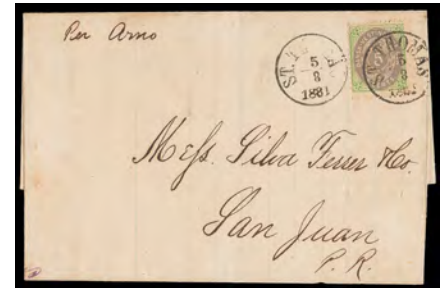 Per Arno
ST. THOMAS
5
8
1881
ST. THOMAS
5
8
1881
5
Messs. Silva Ferrer &Co.
San Juan
P. R.